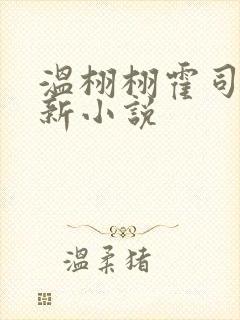 温栩栩霍司
新小説
温柔猪